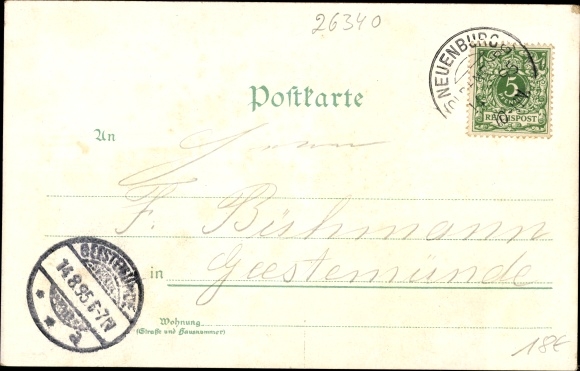 26340
NEUENBURG
5
REICHSPOST
Postkarte
An
Herrn
F. Büshmann
in Geestemünde
GEESTEMÜNDE
14.8.95. 6-7N
* * a
Wohnung
(Straße und Hausnummer)
18€